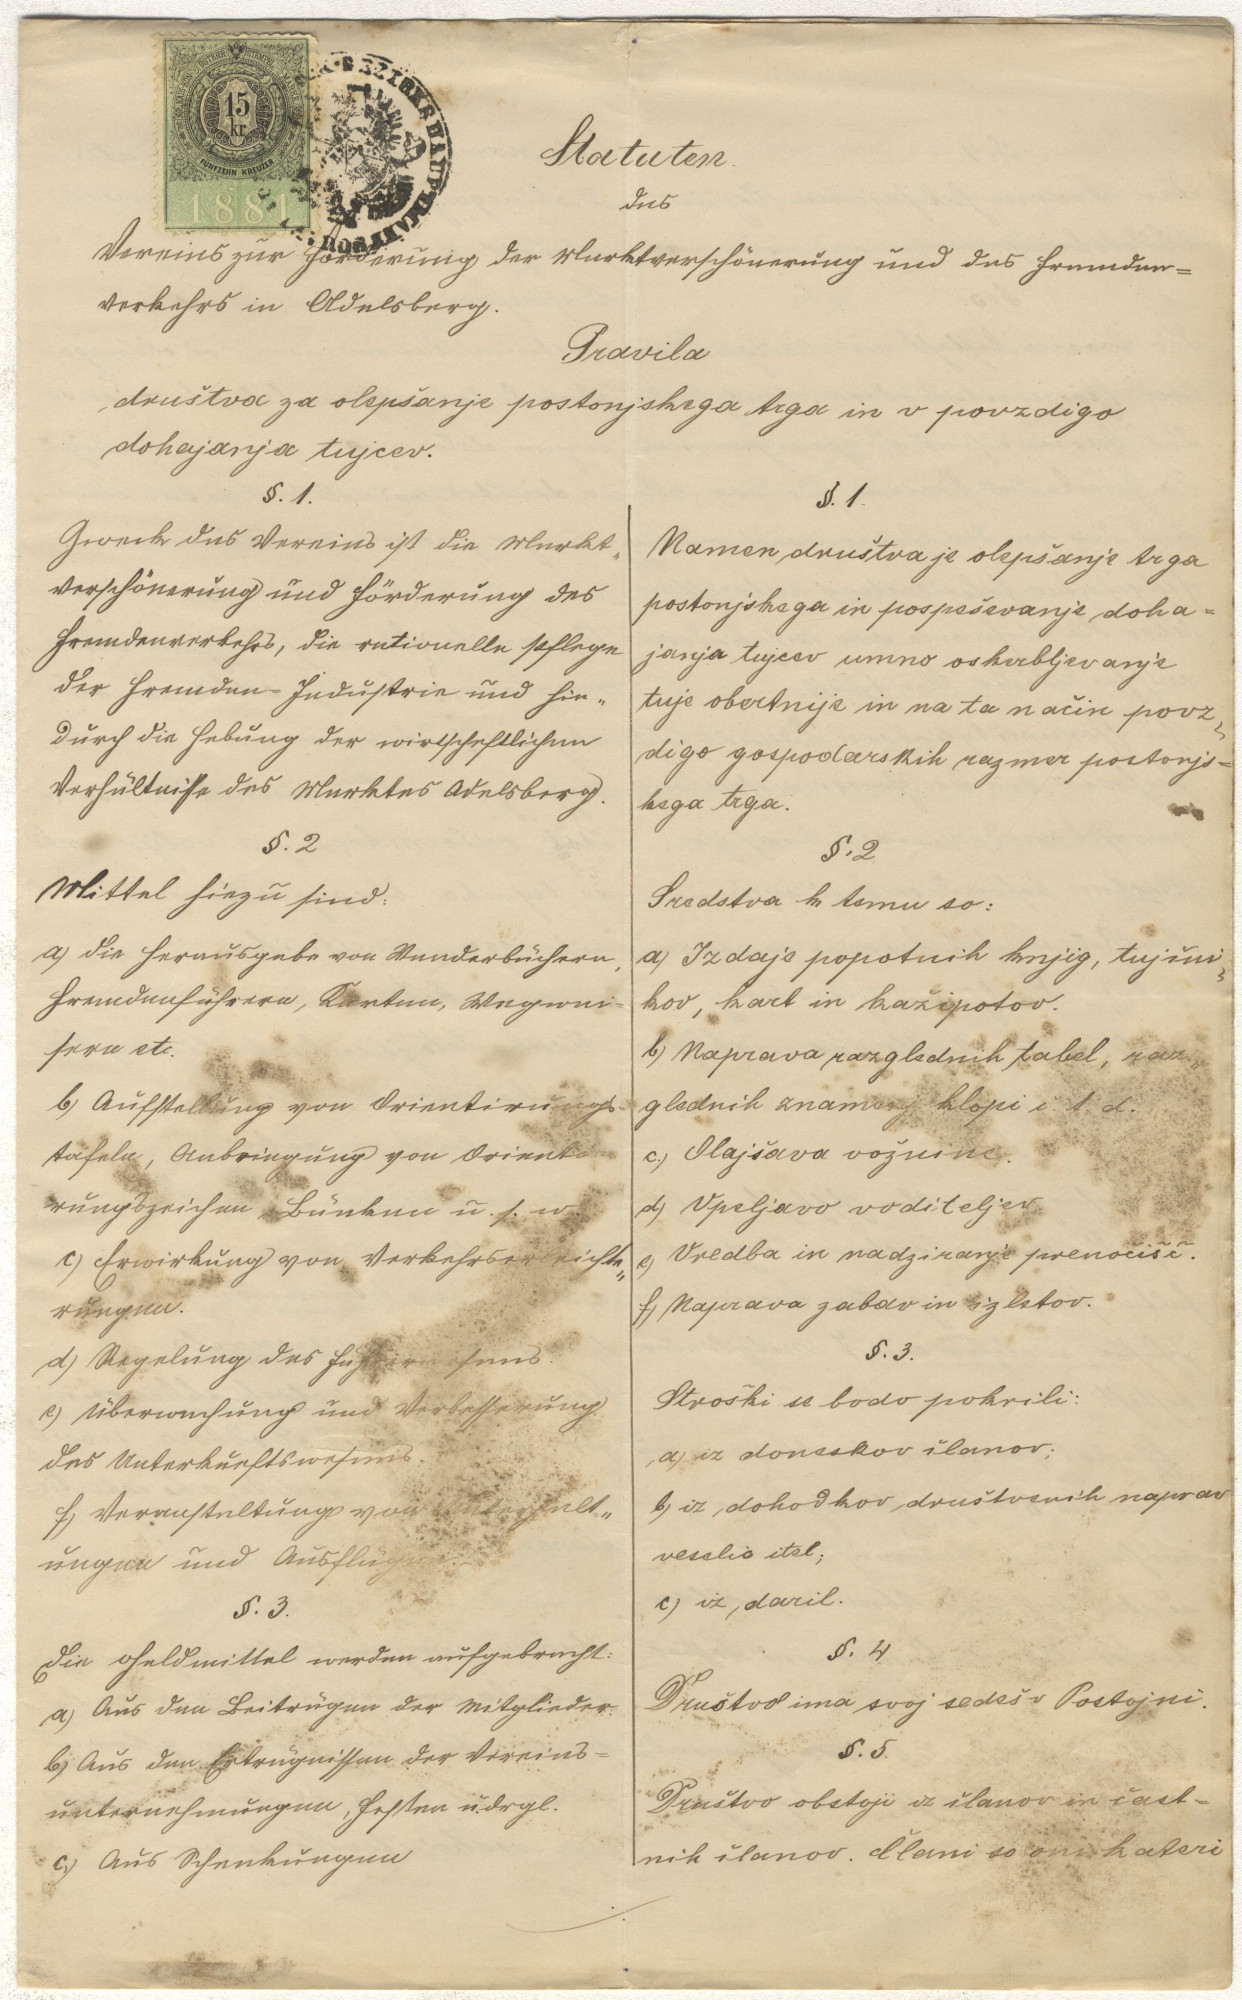 15
kr.
FÜNFZEHN KREUZER
1881
Statuten
des
Vereins zur Förderung der Marktverschönerung und des Fremden=
verkehrs in Adelsberg.
Pravila
društva za olepšanje postonjskega trga in v povzdigo
dohajanja tujcev.
§. 1.
Zweck des Vereins ist die Markt-
verschönerung und Förderung des
Fremdenverkehrs, die rationelle Pflege
der Fremden-Industrie und hie-
durch die Hebung der wirtschaftlichen
Verhältnisse des Marktes Adelsberg.
§. 2
Mittel hiezu sind:
a) die Herausgabe von Wanderbüchern,
Fremdenführern, Karten, Wegwei-
sern etc.
b) Aufstellung von Orientirungs-
tafeln, Anbringung von Orienti-
rungszeichen, Bänken u. s. w.
c) Erwirkung von Verkehrserleichte-
rungen.
d) Regelung des Führerwesens.
e) Überwachung und Verbesserung
des Unterkunftswesens.
f) Veranstaltung von Unterhalt-
ungen und Ausflügen.
§. 3.
Die Geldmittel werden aufgebracht:
a) Aus den Beiträgen der Mitglieder.
b) Aus den Erträgnissen der Vereins=
unternehmungen, Festen u. drgl.
c) Aus Schenkungen
§. 1.
Namen društva je olepšanje trga
postonjskega in pospeševanje doha=
janja tujcev umno oskerbljevanje
tuje obertnije in na ta način povz-
digo gospodarskih razmer postonjs=
kega trga.
§. 2
Sredstva k temu so:
a) Izdaje popotnih knjig, tujini-
kov, kart in kažipotov.
b) Naprava razglednih tabel, raz-
glednih znamenj klopi i. t. d.
c) Olajšava vožnine.
d) Vpeljavo voditeljev
e) Vredba in nadziranje prenočišč.
f) Naprava zabav in izletov.
§. 3.
Stroški se bodo pokrili:
a) iz doneskov članov;
b) iz dohodkov društvenih naprav
veselic itd;
c) iz daril.
§. 4
Društvo ima svoj sedež v Postojni.
§. 5.
Društvo obstoji iz članov in čast-
nih članov. Člani so oni kateri